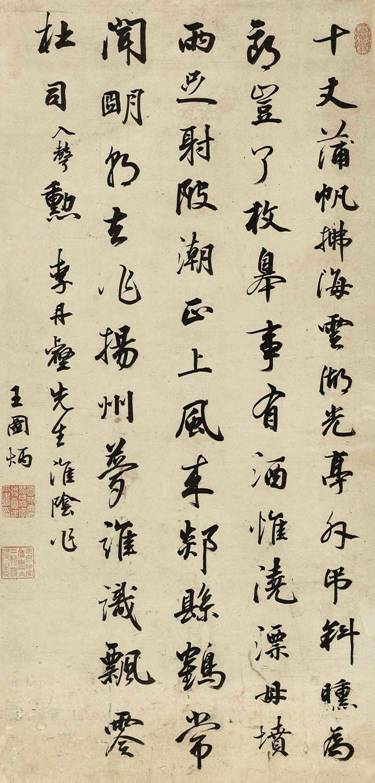 十丈蒲帆拂海雲湖光亭外吊斜曛為
郎豈了枚皋事有酒惟澆漂母墳
雨足射陂潮正上風來郯縣鶴常
聞明朝去作揚州夢誰識飄零
杜司入聲勳 李丹壑先生淮陰作
王圖炳